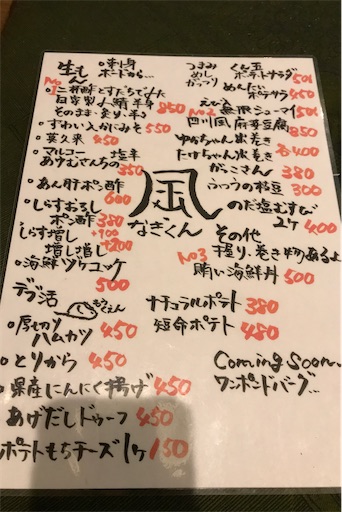 生もん
○刺身ボードから…
No1
○二杯酢とすだちでしめた
自家製〆鯖半身
そのまま・炙り・半々 850
○ずわい入かにみそ 550
○莫久来 450
○マルユー 塩辛
あゆむさんちの 350
○あん肝ポン酢 600
○しらすおろし
ポン酢 350
しらす増し +100
増し増し +200
○海鮮ヅケユッケ 500
デブ活
○厚切りハムカツ 450
○とりから 450
○県産にんにく揚げ 450
あげだしドゥーフ 450
ポテトもちチーズ1ケ 150
凪
なぎくん
つまみ
めし
がっつり
くん玉
ポテトサラダ 500
めんたい
ポテサラ 450
えび
No2 無限シューマイ 150
四川風麻婆豆腐 850
ゆかちゃん出巻き
たけちゃん出巻き 各400
がっこさん 380
ふつうの枝豆 300
のだ塩むすび
2ケ 400
その他
握り、巻き物あるよ
No3 賄い海鮮丼 500
ナチュラルポテト 380
短命ポテト 480
Coming Soon…
ワンポンドバーグ…